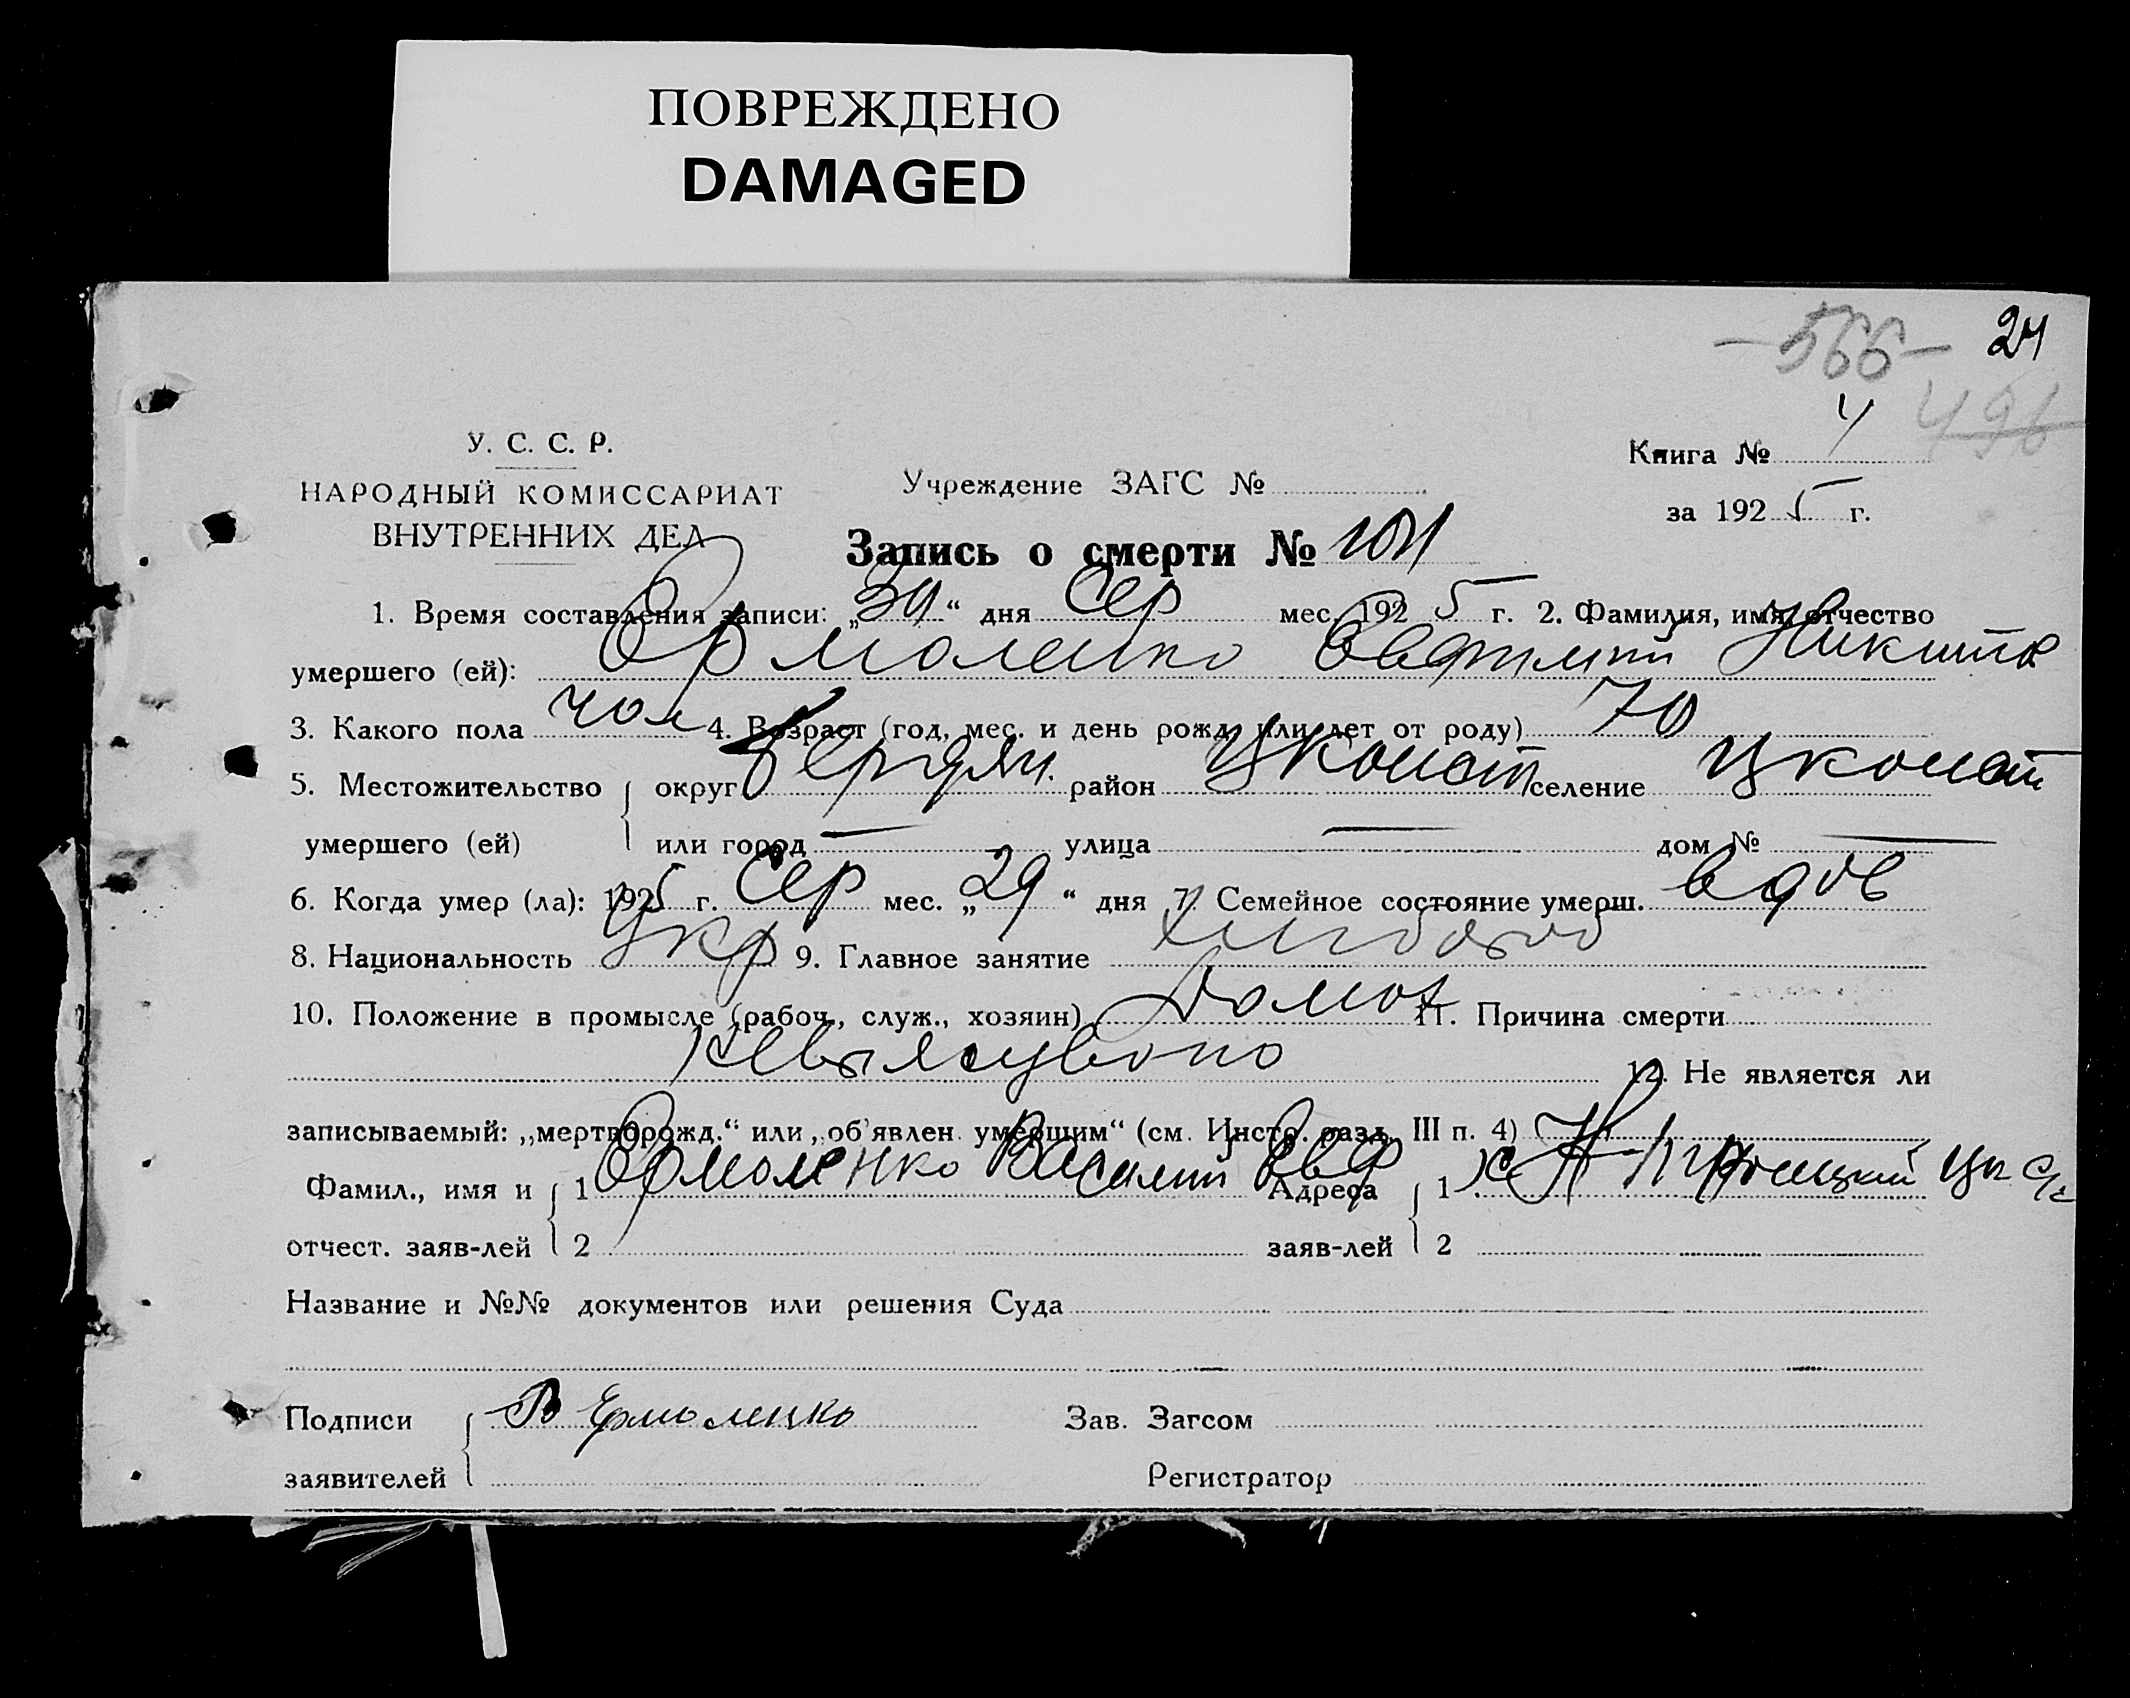 ПОВРЕЖДЕНО
DAMAGED
— 566 — 24
496
У. С. С. Р.
НАРОДНЫЙ КОМИССАРИАТ
ВНУТРЕННИХ ДЕЛ
Учреждение ЗАГС №
Книга № 4
за 1925 г.
Запись о смерти №
1. Время составления записи: „30“ дня Сер мес. 1925 г. 2. Фамилия, имя, отчество
умершего (ей): Єрмоленко Никита
3. Какого пола чол 4. Возраст (год, мес. и день рожд. или лет от роду) 70
5. Местожительство округ Бердян. район селение
умершего (ей) или город — улица — дом № —
6. Когда умер (ла): 1925 г. Сер мес. „29“ дня 7. Семейное состояние умерш. вдов
8. Национальность Укр 9. Главное занятие хлибороб
10. Положение в промысле (рабоч., служ., хозяин) 11. Причина смерти
12. Не является ли
записываемый: „мертворожд.“ или „об'явлен умершим“ (см. Инстр. разд. III п. 4)
Фамил., имя и 1 Єрмоленко Василий Евд Адреса 1
отчест. заяв-лей 2 заяв-лей 2
Название и №№ документов или решения Суда
Подписи В Ермоленко Зав. Загсом
заявителей Регистратор